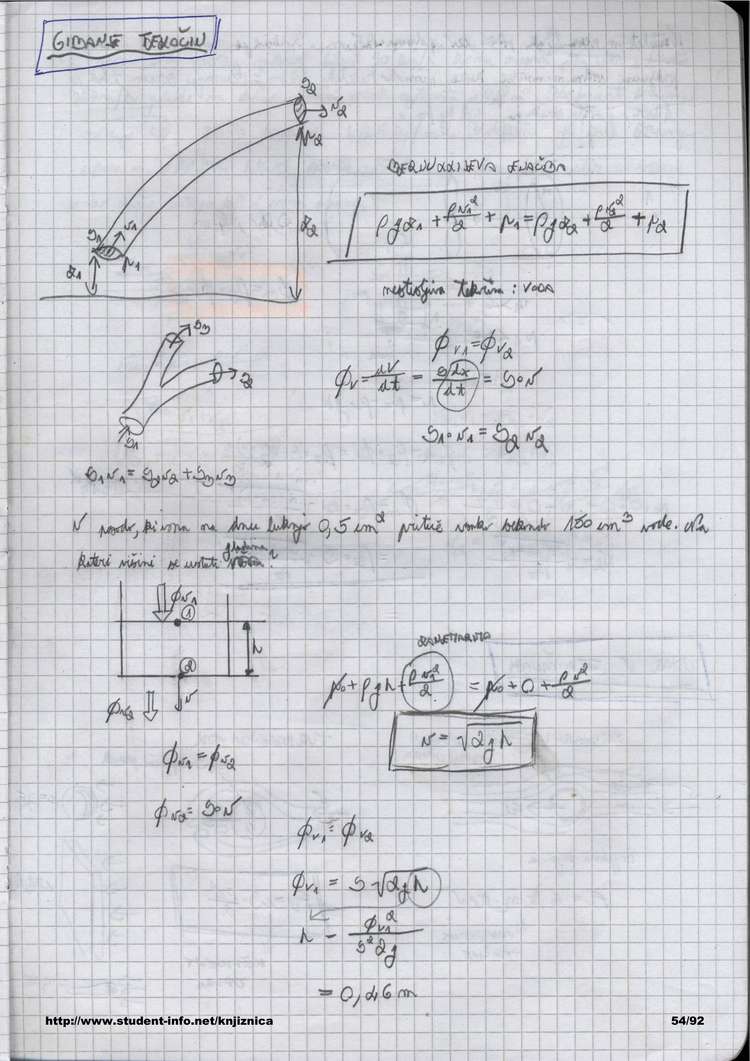 GIBANJE TEKOČIN
S2
v2
p2
z2
S1 v1
p1
z1
BERNULLIJEVA ENAČBA
ρgz1 + ρv1²/2 + p1 = ρgz2 + ρv2²/2 + p2
nestisljiva tekočina : VODA
S3
S2
S1
ϕv1 = ϕv2
ϕv = dV/dt = S dx/dt = S·v
S1·v1 = S2 v2
S1v1 = S2v2 + S3v3
V posodo, ki ima na dnu luknjo 0,5 cm² priteče vsako sekundo 150 cm³ vode. Na
kateri višini se ustali gladina?
ϕv1
1
h
2
v
ϕv2
ZANEMARIMO
p0 + ρgh + ρv1²/2 = p0 + 0 + ρv²/2
v = √2gh
ϕv1 = ϕv2
ϕv2 = S·v
ϕv1 = ϕv2
ϕv1 = S √2gh
h = ϕv1²/S²2g
= 0,46 m
http://www.student-info.net/knjiznica 54/92